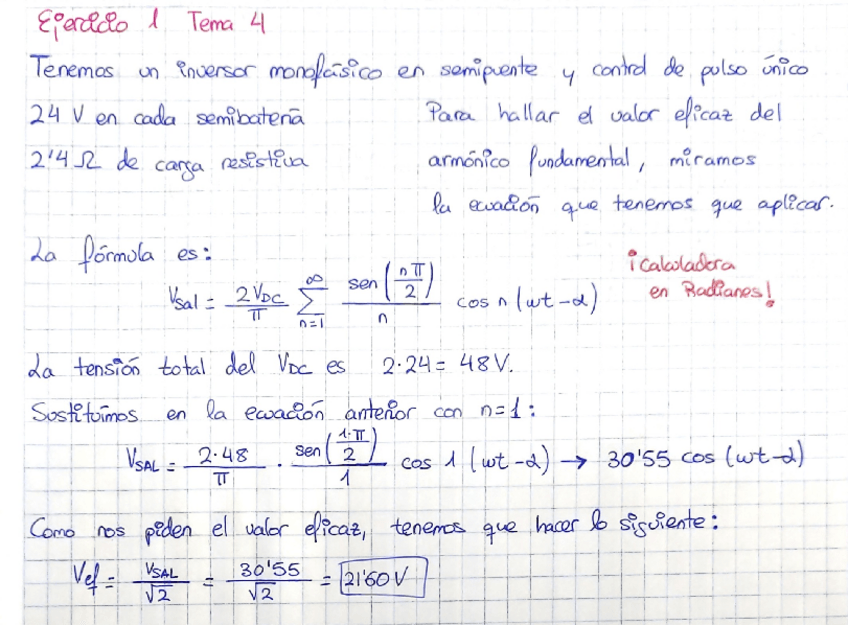 Ejercicio 1 Tema 4
Tenemos un inversor monofásico en semipuente y control de pulso único
24 V en cada semibatería
2'4 Ω de carga resistiva
Para hallar el valor eficaz del
armónico fundamental, miramos
la ecuación que tenemos que aplicar.
La fórmula es:
V_sal = \frac{2V_{DC}}{π} \sum_{n=1}^{∞} \frac{sen(\frac{nπ}{2})}{n} cos n (wt-α)
¡Calculadora
en Radianes!
La tensión total del V_DC es 2·24 = 48 V.
Sustituimos en la ecuación anterior con n=1:
V_SAL = \frac{2·48}{π} · \frac{sen(\frac{1·π}{2})}{1} cos 1 (wt-α) → 30'55 cos (wt-α)
Como nos piden el valor eficaz, tenemos que hacer lo siguiente:
Vef = \frac{V_{SAL}}{\sqrt{2}} = \frac{30'55}{\sqrt{2}} = 21'60 V